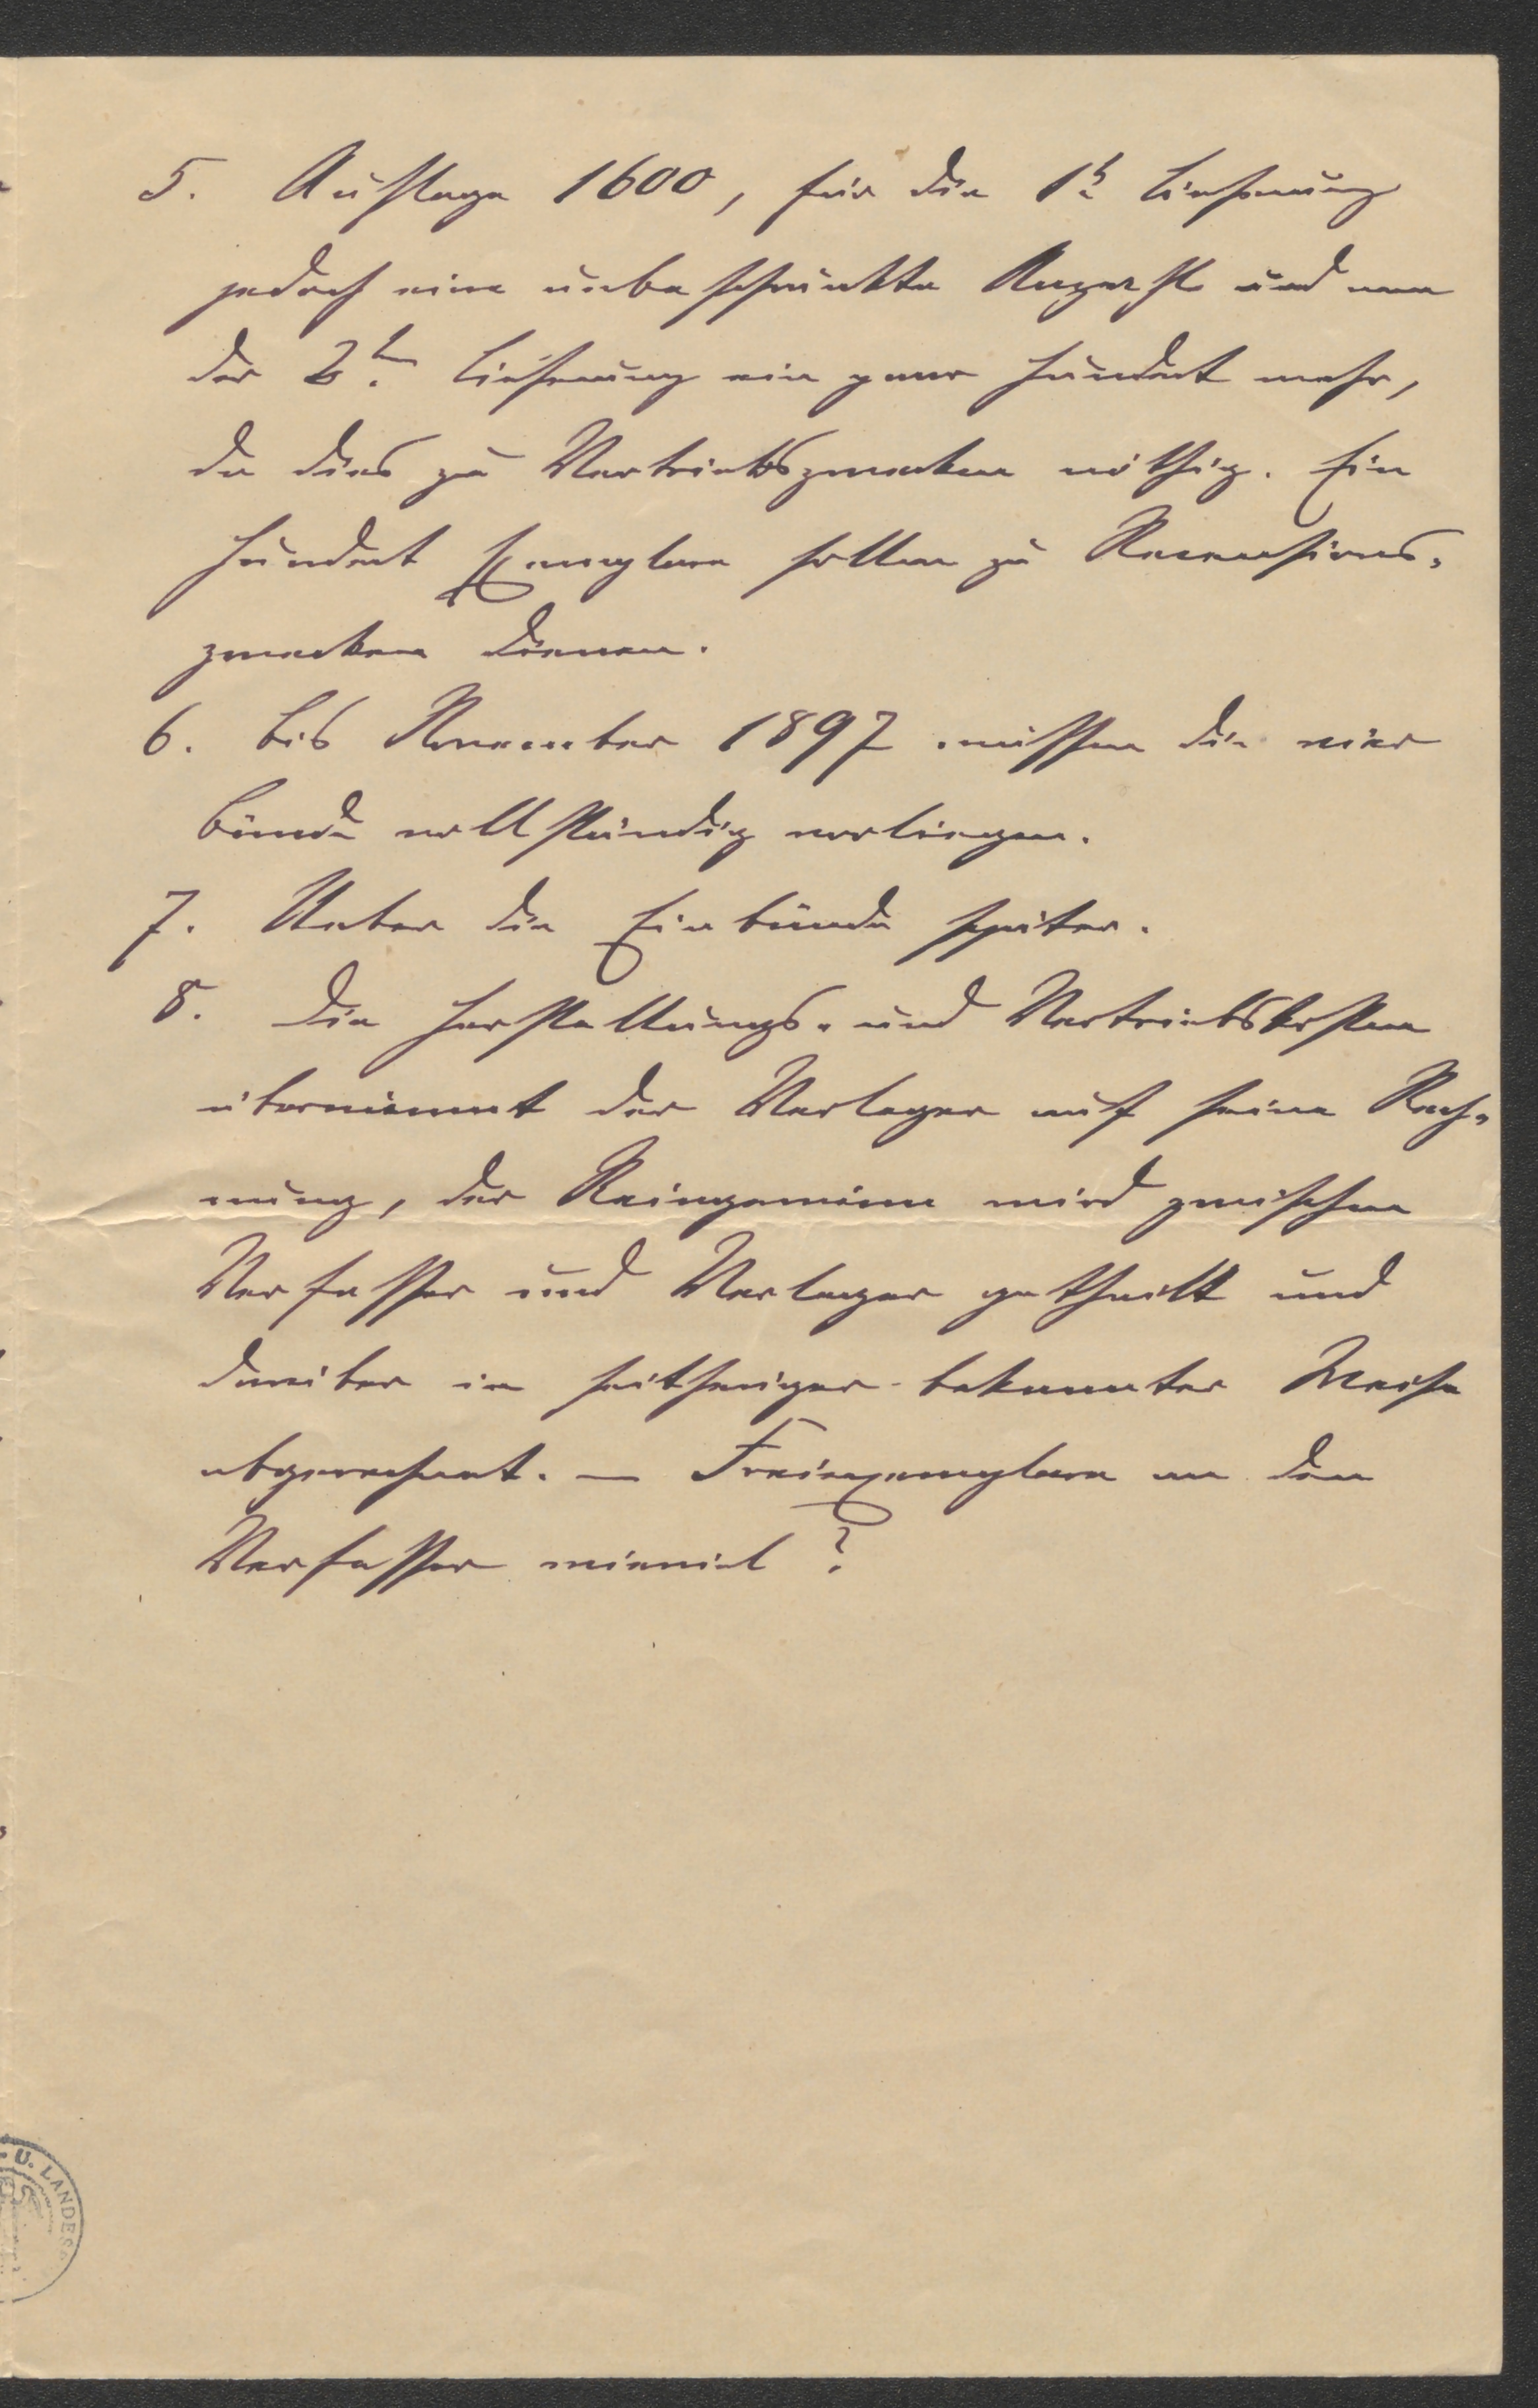 5. Auflage 1600, für die 1te Lieferung
jedoch eine unbeschränkte Anzahl und von
der 2ten Lieferung ein paar hundert mehr,
da dies zu Vertriebszwecken nöthig. Ein
hundert Exemplare sollen zu Recensions-
zwecken dienen.
6. Bis November 1897 müssen die vier
Bände vollständig vorliegen.
7. Ueber die Einbände später.
8. Die Herstellungs- und Vertriebskosten
übernimmt der Verleger auf seine Rech-
nung, der Reingewinn wird zwischen
Verfasser und Verleger getheilt und
darüber in seitheriger bekannter Weise
abgerechnet. — Freiexemplare an den
Verfasser wieviel?
U. LANDES